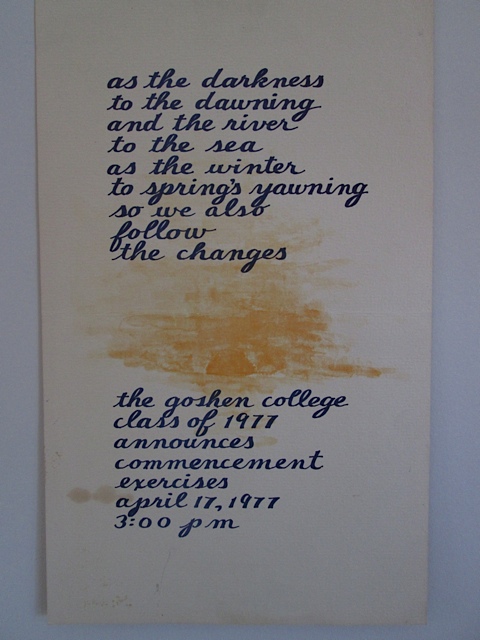 as the darkness
to the dawning
and the river
to the sea
as the winter
to spring's yawning
so we also
follow
the changes
the goshen college
class of 1977
announces
commencement
exercises
april 17, 1977
3:00 pm